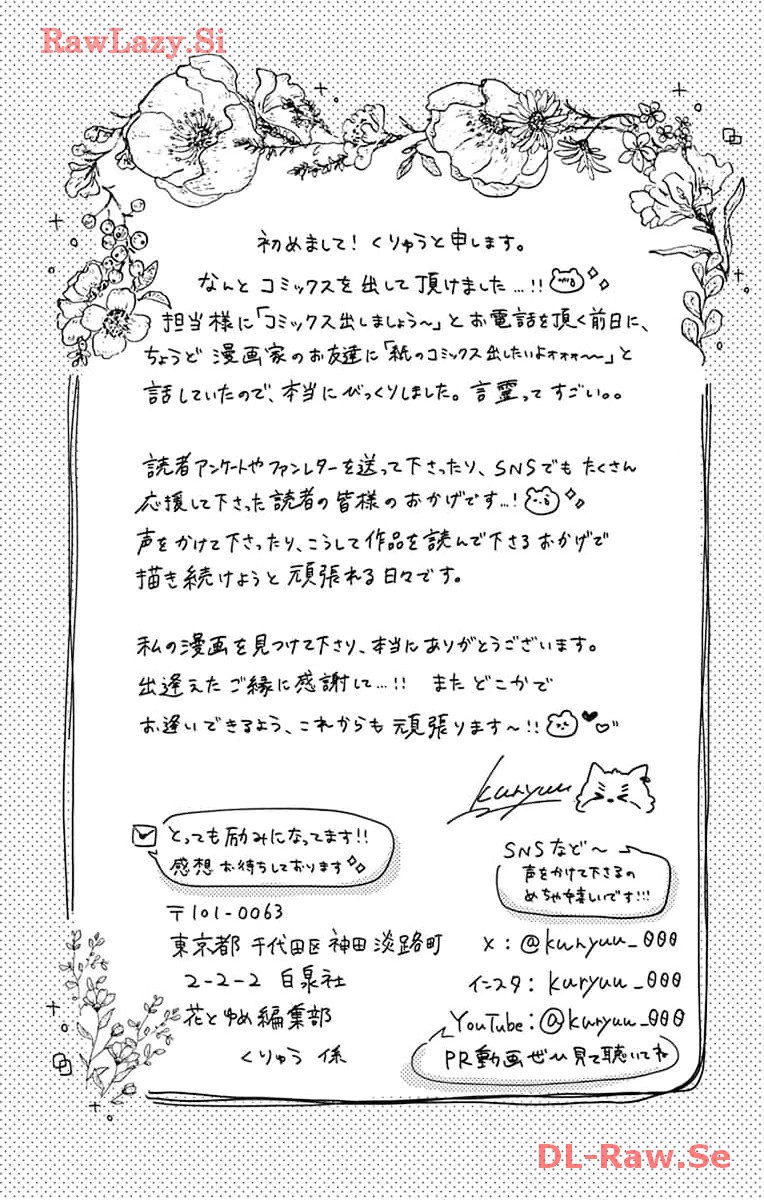 RawLazy.Si
初めまして！くりゅうと申します。
なんと コミックスを出して頂けました…!!
担当様に「コミックス出しましょう〜」とお電話を頂く前日に、
ちょうど 漫画家のお友達に「紙のコミックス出したいよォォォ〜〜」と
話していたので、本当にびっくりしました。言霊ってすごい。。
読者アンケートやファンレターを送って下さったり、SNSでも たくさん
応援して下さった読者の皆様のおかげです…!
声をかけて下さったり、こうして作品を読んで下さる おかげで
描き続けようと 頑張れる日々です。
私の漫画を見つけて下さり、本当にありがとうございます。
出逢えたご縁に感謝して…!! またどこかで
お逢いできるよう、これからも頑張ります〜!!
kuryuu
とっても励みになってます!!
感想お待ちしております
SNSなど〜
声をかけて下さるの
めちゃ嬉しいです!!!
〒101-0063
東京都 千代田区 神田 淡路町
2-2-2 白泉社
花とゆめ編集部
くりゅう 係
X：@kuryuu_000
インスタ：kuryuu_000
YouTube：@kuryuu_000
PR動画ぜひ見て聴いてね
DL-Raw.Se